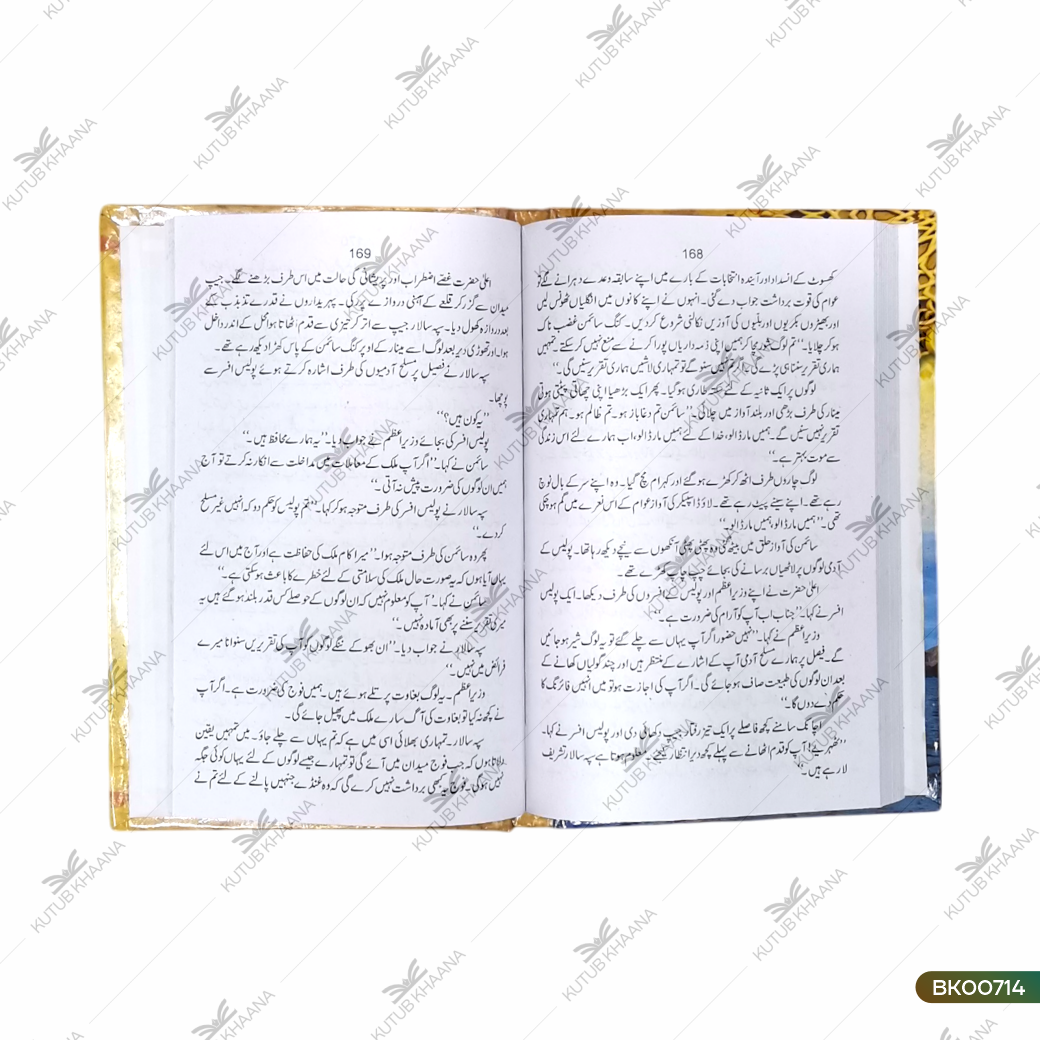 168
کھسوٹ کے انسداد اور آیندہ انتخابات کے بارے میں اپنے سابقہ وعدے دہرانے لگے تو
عوام کی قوت برداشت جواب دے گئی۔ انہوں نے اپنے کانوں میں انگلیاں ٹھونس لیں
اور بھیڑوں بکریوں اور بلیوں کی آوزیں نکالنی شروع کردیں۔ کنگ سائمن غضب ناک
ہو کر چلایا۔ ’’تم لوگ شور مچا کر ہمیں اپنی ذمہ داریاں پورا کرنے سے منع نہیں کر سکتے۔ تمہیں
ہماری تقریر سننا ہی پڑے گی۔ اگر تم نہیں سنو گے تو تمہاری لاشیں ہماری تقریر سنیں گی۔‘‘
لوگوں پر ایک ثانیہ کے لئے سکتہ طاری ہو گیا۔ پھر ایک بڑھیا اپنی چھاتی پیٹتی ہوئی
مینار کی طرف بڑھی اور بلند آواز میں چلائی۔ ’’سائمن تم دغاباز ہو۔ تم ظالم ہو۔ ہم تمہاری
تقریر نہیں سنیں گے۔ ہمیں مار ڈالو، خدا کے لئے ہمیں مار ڈالو، اب ہمارے لئے اس زندگی
سے موت بہتر ہے۔‘‘
لوگ چاروں طرف اٹھ کر کھڑے ہو گئے اور کہرام مچ گیا۔ وہ اپنے سر کے بال نوچ
رہے تھے۔ اپنے سینے پیٹ رہے تھے۔ لاؤڈ اسپیکر کی آواز عوام کے اس نعرے میں گم ہو چکی
تھی۔ ’’ہمیں مار ڈالو ہمیں مار ڈالو۔‘‘
سائمن کی آواز حلق میں بیٹھ گئی وہ پھٹی پھٹی آنکھوں سے نیچے دیکھ رہا تھا۔ پولیس کے
آدمی لوگوں پر لاٹھیاں برسانے کی بجائے چپ چاپ کھڑے تھے۔
اعلیٰ حضرت نے اپنے وزیر اعظم اور پولیس کے افسروں کی طرف دیکھا۔ ایک پولیس
افسر نے کہا۔ ’’جناب اب آپ کو آرام کی ضرورت ہے۔‘‘
وزیر اعظم نے کہا۔ ’’نہیں حضور اگر آپ یہاں سے چلے گئے تو یہ لوگ شیر ہو جائیں
گے۔ فصیل پر ہمارے مسلح آدمی آپ کے اشارے کے منتظر ہیں اور چند گولیاں کھانے کے
بعد ان لوگوں کی طبیعت صاف ہو جائے گی۔ اگر آپ کی اجازت ہو تو میں انہیں فائرنگ کا
حکم دے دوں گا۔‘‘
اچانک سامنے کچھ فاصلے پر ایک تیز رفتار جیپ دکھائی دی اور پولیس افسر نے کہا۔
’’ٹھہریئے! آپ کو قدم اٹھانے سے پہلے کچھ دیر انتظار کیجئے۔ معلوم ہوتا ہے سپہ سالار تشریف
لا رہے ہیں۔‘‘
169
اعلیٰ حضرت غصے اضطراب اور پریشانی کی حالت میں اس طرف بڑھنے لگے۔ جیپ
میدان سے گزر کر قلعے کے آہنی دروازے پر رکی۔ پہریداروں نے قدرے تذبذب کے
بعد دروازہ کھول دیا۔ سپہ سالار جیپ سے اتر کر تیزی سے قدم اٹھاتا ہوا محل کے اندر داخل
ہوا۔ اور تھوڑی دیر بعد لوگ اسے مینار کے اوپر کنگ سائمن کے پاس کھڑا دیکھ رہے تھے۔
سپہ سالار نے فصیل پر مسلح آدمیوں کی طرف اشارہ کرتے ہوئے پولیس افسر سے
پوچھا۔
’’یہ کون ہیں؟‘‘
پولیس افسر کی بجائے وزیر اعظم نے جواب دیا۔ ’’یہ ہمارے محافظ ہیں۔‘‘
سائمن نے کہا۔ ’’اگر آپ ملک کے معاملات میں مداخلت سے انکار نہ کرتے تو آج
ہمیں ان لوگوں کی ضرورت پیش نہ آتی۔‘‘
سپہ سالار نے پولیس افسر کی طرف متوجہ ہو کر کہا۔ ’’تم پولیس کو حکم دو کہ انہیں غیر مسلح
کر دے۔‘‘
پھر وہ سائمن کی طرف متوجہ ہوا۔ ’’میرا کام ملک کی حفاظت ہے اور آج میں اس لئے
یہاں آیا ہوں کہ یہ صورت حال ملک کی سلامتی کے لئے خطرے کا باعث ہو سکتی ہے۔‘‘
سائمن نے کہا۔ ’’آپ کو معلوم نہیں کہ ان لوگوں کے حوصلے کس قدر بلند ہو گئے ہیں یہ
میری تقریر سننے پر بھی آمادہ نہیں۔‘‘
سپہ سالار نے جواب دیا۔ ’’ان بھوکے ننگے لوگوں کو آپ کی تقریریں سنوانا میرے
فرائض میں نہیں۔‘‘
وزیر اعظم۔ یہ لوگ بغاوت پر تلے ہوئے ہیں۔ ہمیں فوج کی ضرورت ہے۔ اگر آپ
نے کچھ نہ کیا تو بغاوت کی آگ سارے ملک میں پھیل جائے گی۔
سپہ سالار۔ تمہاری بھلائی اسی میں ہے کہ تم یہاں سے چلے جاؤ۔ میں تمہیں یقین
دلاتا ہوں کہ جب فوج میدان میں آئے گی تو تمہارے جیسے لوگوں کے لئے یہاں کوئی جگہ
نہیں ہو گی۔ فوج یہ کبھی برداشت نہیں کرے گی کہ وہ غنڈے جنہیں پالنے کے لئے تم نے
KUTUB KHAANA
BK00714